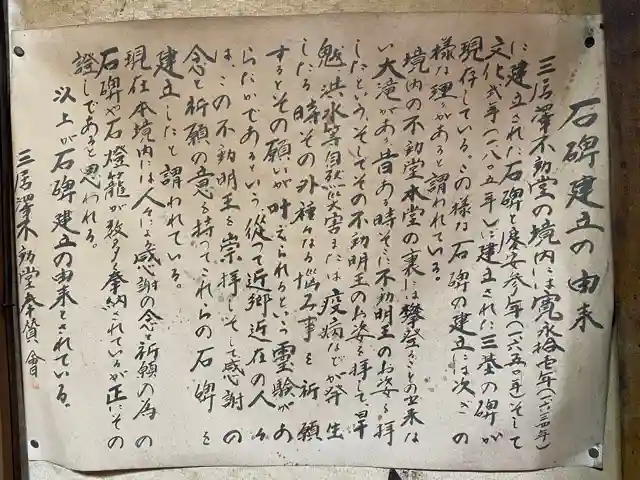 石碑建立の由来
三居澤不動堂の境内には寛永拾壱年(一六三四年)
に建立された石碑と慶安参年(一六五〇年)そして
文化弐年(一八〇五年)に建立された三基の碑が
現存している。この様な石碑の建立には次ぎの
様な理があると謂われている。
境内の不動堂本堂の裏には攀登ることの出来な
い大滝があり昔ある時そこに不動明王のお姿を拝
したという、そしてその不動明王のお姿を拝して旱
魃、洪水等自然災害または疫病などが発生
したる時その外種々なる悩み事を祈願
するとその願いが叶えられるという霊験があ
らたかであるという、従って近郷近在の人々
は、この不動明王を崇拝しそして感謝の
念と祈願の意を持ってこれらの石碑を
建立したと謂われている。
現在本境内には人々による感謝の念と祈願の為の
石碑や石燈籠が数多く奉納されているが正にその
證しであると思われる。
以上が石碑建立の由来とされている。
三居澤不動堂奉賛會